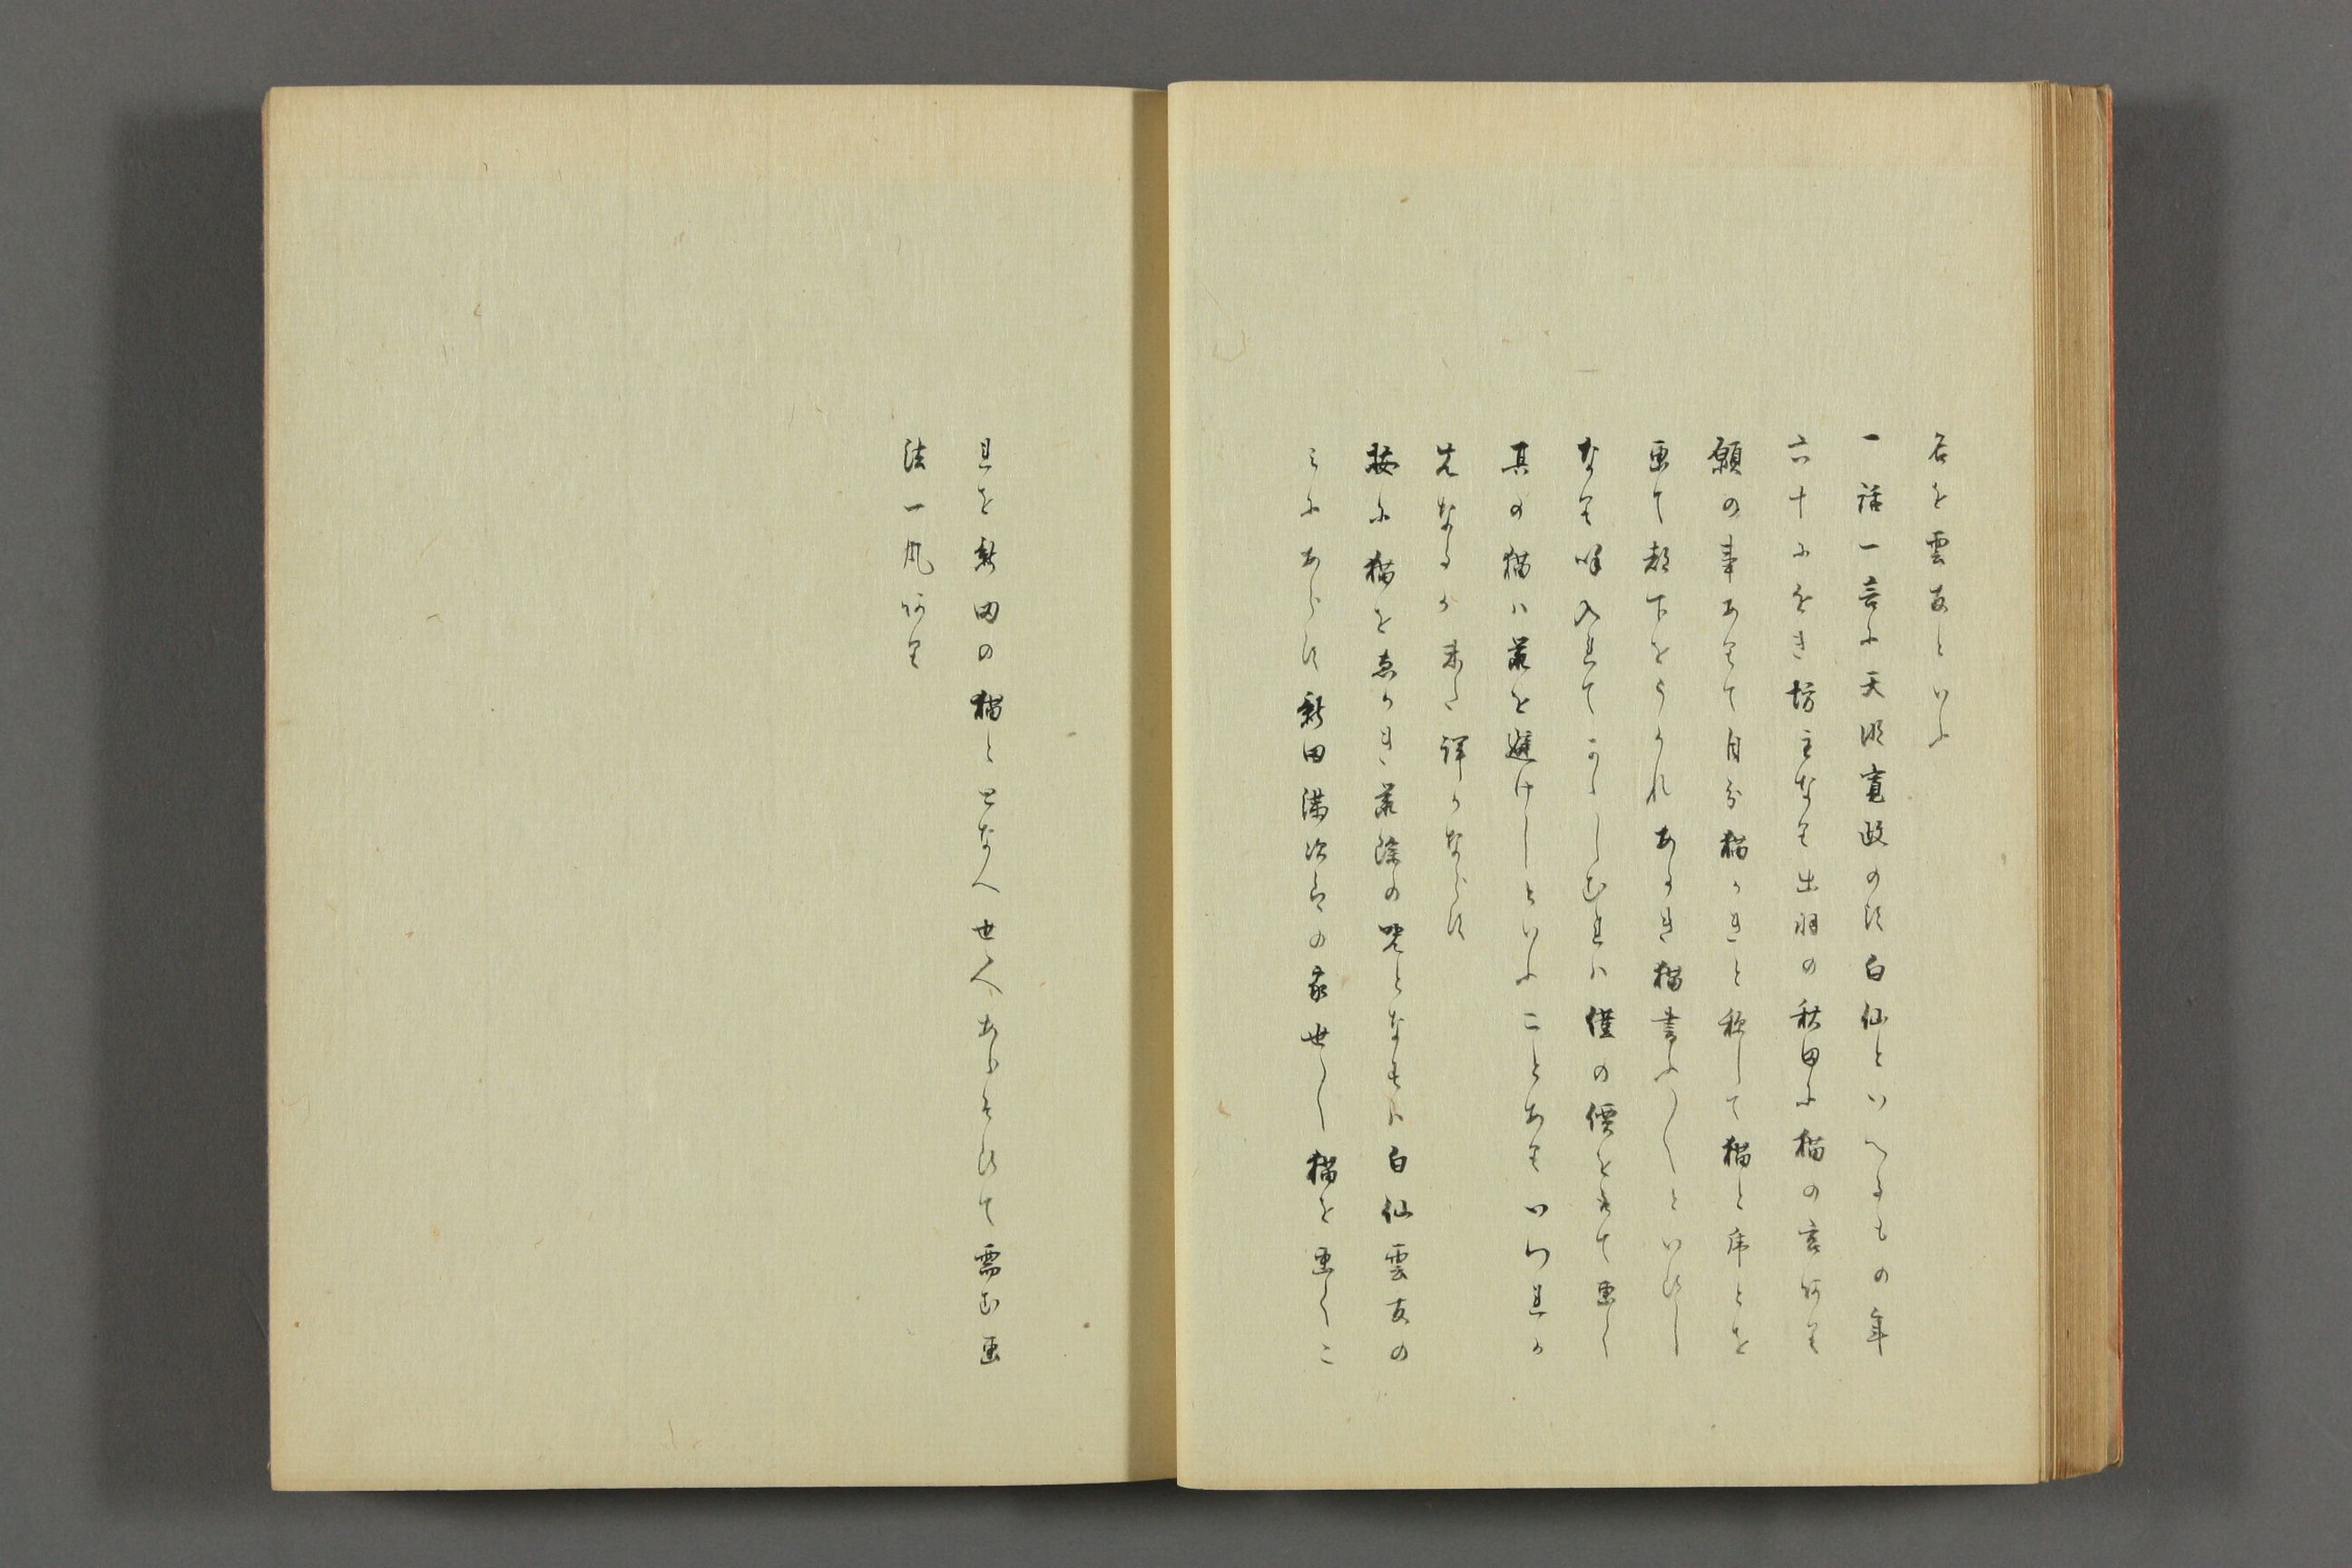 名を雲友といふ
一話一言に天明寛政の頃白仙といへるもの年
六十にちかき坊主なり出羽の秋田に猫の宮あり
願の事ありて自分猫かきと称して猫と虎とを
画て都下をうかれあるき猫書ふ〱といひし
なり呼入れてかゝしむれハ僅の価をもて画く
其の猫ハ鼠を避けしといふことありいつれか
先なるか未た詳かならす
按に猫を画かき鼠除の呪となすハ白仙雲友の
ミにあらす新田満次郎の家世〻猫を画くこ
れを新田の猫ととなへ世人あらそひて需む画
法一風あり